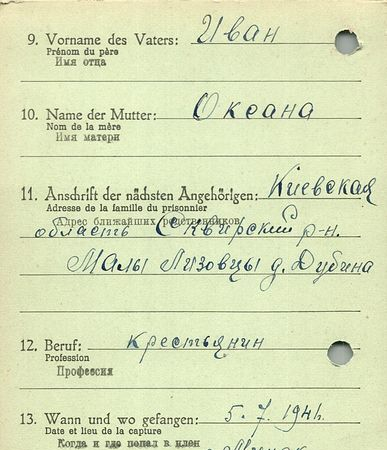 9. Vorname des Vaters: Иван
Prénom du père
Имя отца
10. Name der Mutter: Оксана
Nom de la mère
Имя матери
11. Anschrift der nächsten Angehörigen: Киевская
Adresse de la famille du prisonnier
Адрес ближайших родственников
область Сквирский р-н.
Малы Лизовцы д. Дубина
12. Beruf: крестьянин
Profession
Профессия
13. Wann und wo gefangen: 5.7.1941.
Date et lieu de la capture
Когда и где попал в плен